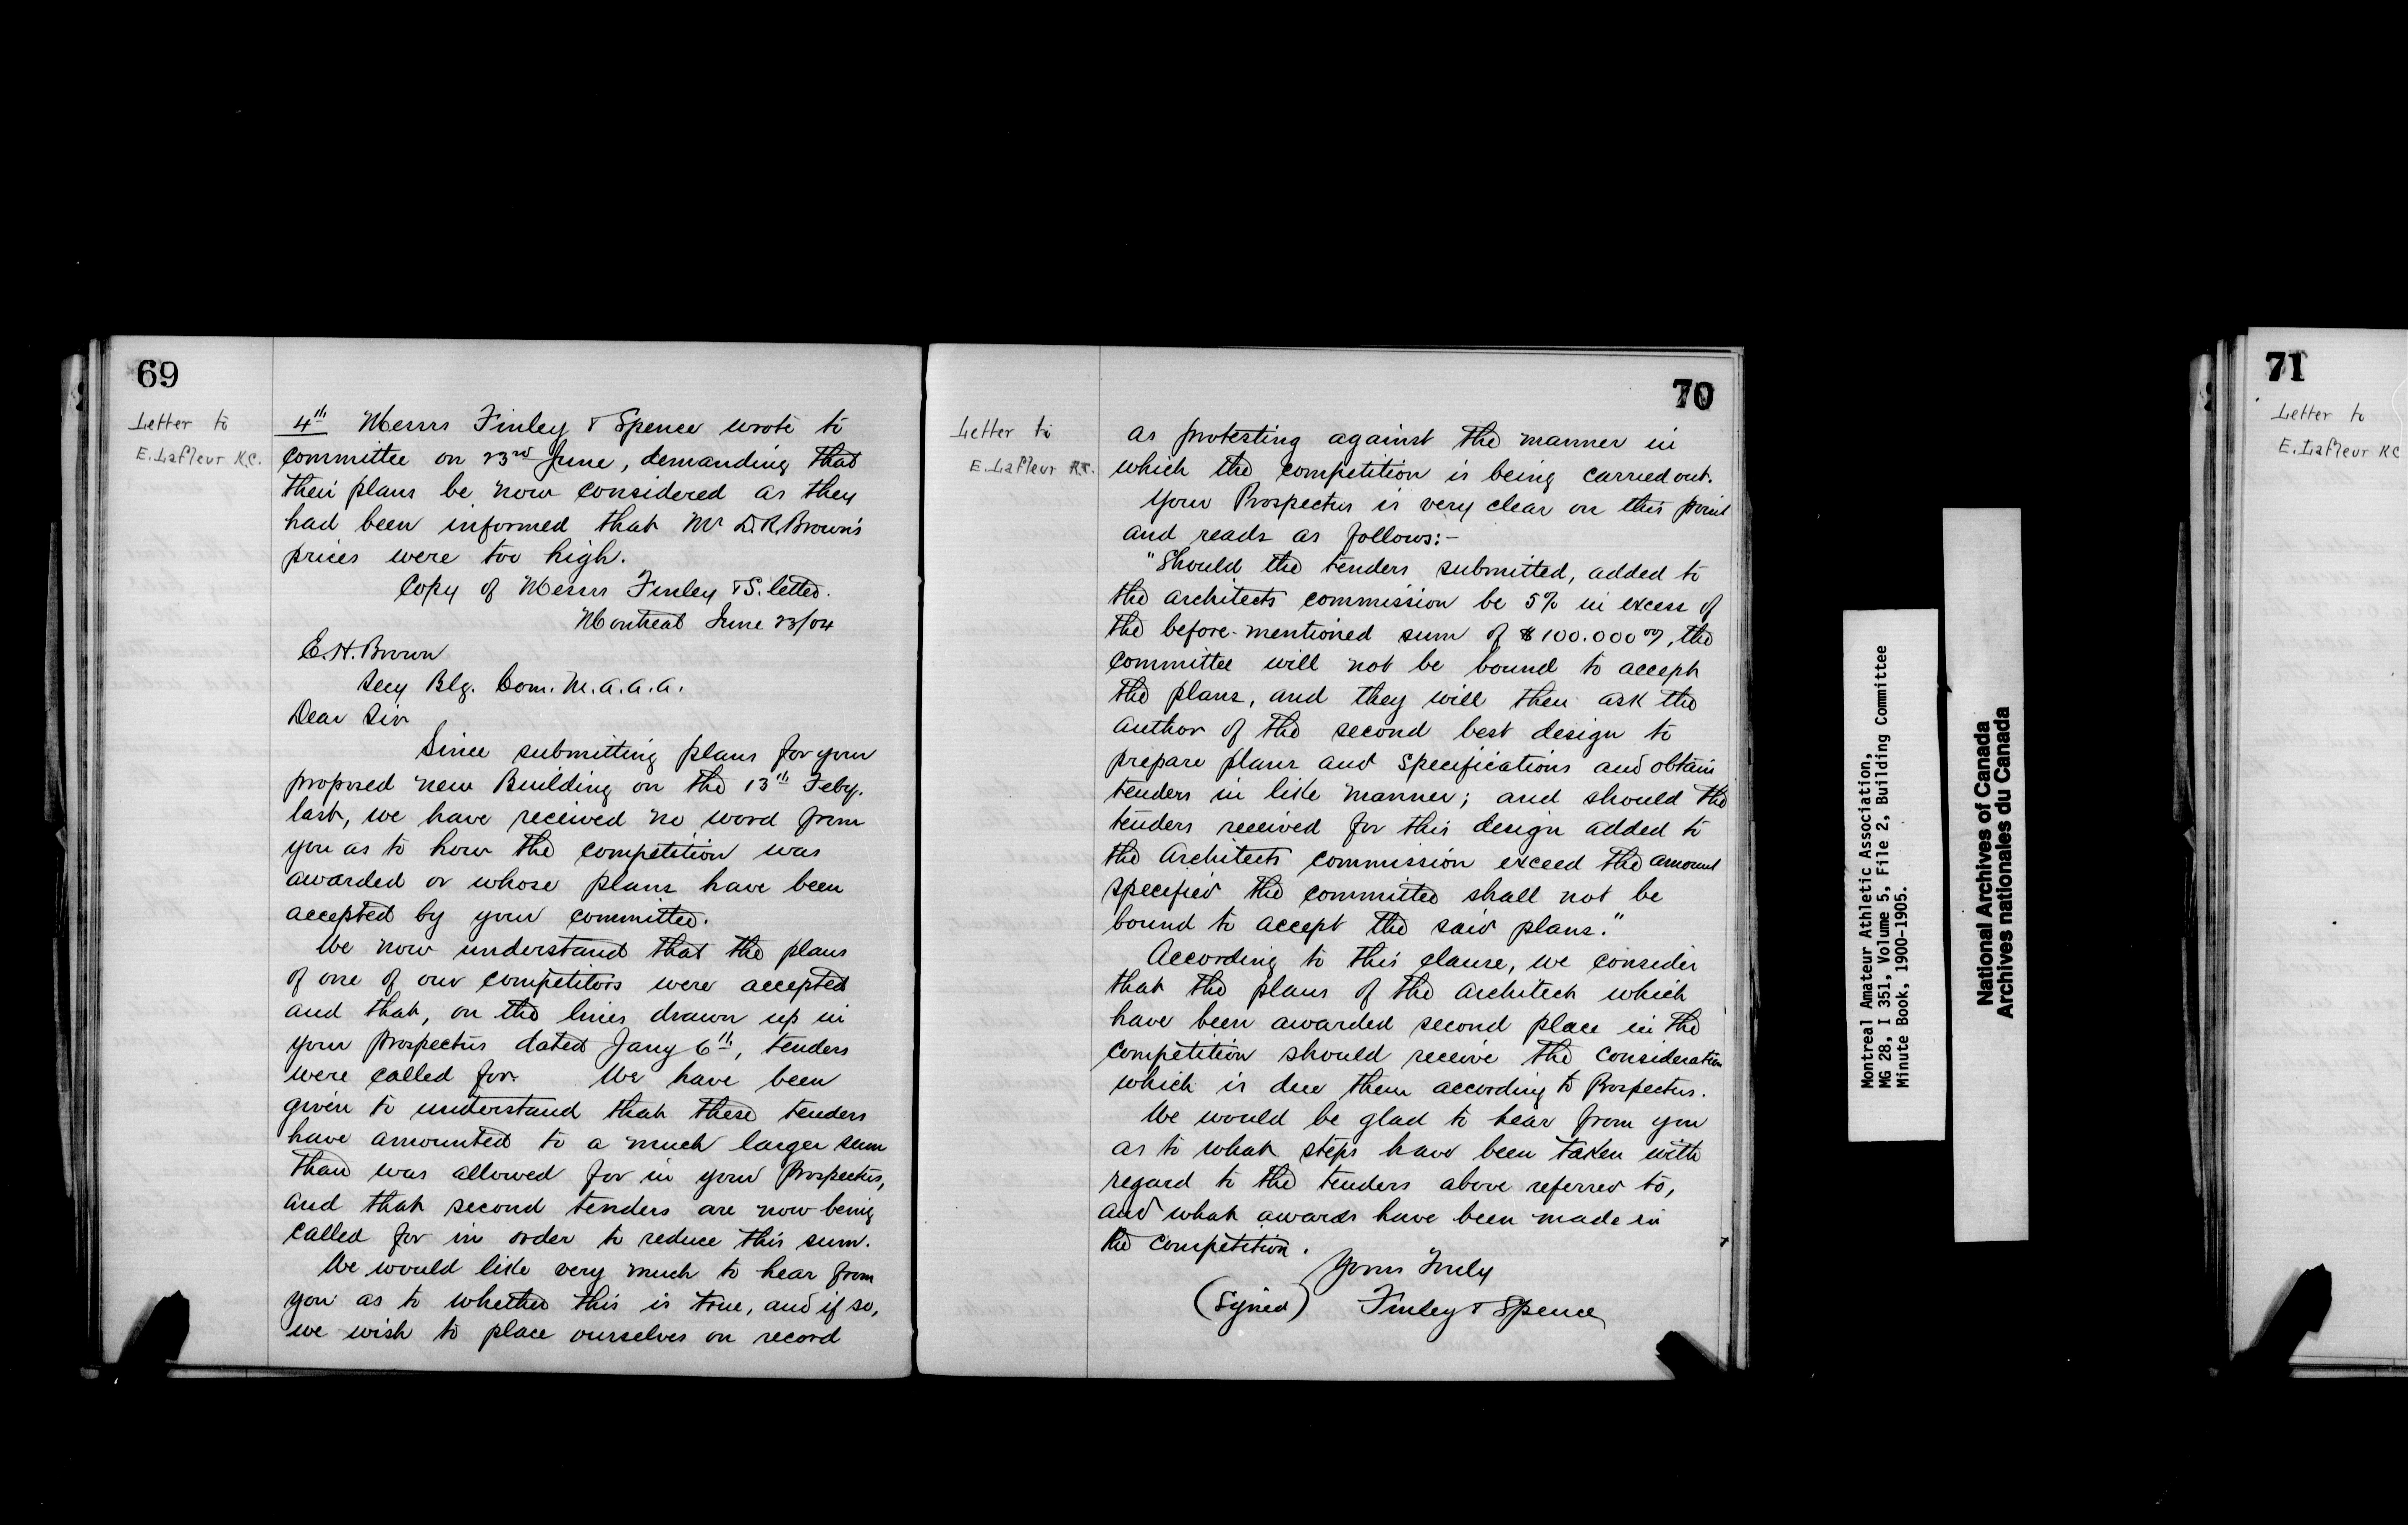 69
Letter to
E. Lafleur K.C.
4th Messrs Finley & Spence wrote to
committee on 23rd June, demanding that
their plans be now considered as they
had been informed that Mr D.R. Brown's
prices were too high.
Copy of Messrs Finley & S. letter.
Montreal June 23/04
E.H. Brown
Secy Blg. Com. M.A.A.A.
Dear Sir
Since submitting plans for your
proposed new Building on the 13th Feby.
last, we have received no word from
you as to how the competition was
awarded or whose plans have been
accepted by your committee.
We now understand that the plans
of one of our competitors were accepted
and that, on the lines drawn up in
your prospectus dated Jany 6th, tenders
were called for. We have been
given to understand that these tenders
have amounted to a much larger sum
than was allowed for in your Prospectus,
and that second tenders are now being
called for in order to reduce this sum.
We would like very much to hear from
you as to whether this is true, and if so,
we wish to place ourselves on record
70
Letter to
E. Lafleur K.C.
as protesting against the manner in
which the competition is being carried out.
Your Prospectus is very clear on this point
and reads as follows:-
"Should the tenders submitted, added to
the architects commission be 5% in excess of
the before-mentioned sum of $100.000 00, the
committee will not be bound to accept
the plans, and they will then ask the
author of the second best design to
prepare plans and specifications and obtain
tenders in like manner; and should the
tenders received for this design added to
the Architects commission exceed the amount
specified the committee shall not be
bound to accept the said plans."
According to this clause, we consider
that the plans of the architect which
have been awarded second place in the
competition should receive the consideration
which is due them according to Prospectus.
We would be glad to hear from you
as to what steps have been taken with
regard to the tenders above referred to,
and what awards have been made in
the competition.
Yours Truly
(Signed) Finley & Spence
Montreal Amateur Athletic Association,
MG 28, I 351, Volume 5, File 2, Building Committee
Minute Book, 1900-1905.
National Archives of Canada
Archives nationales du Canada
71
Letter to
E. Lafleur KC